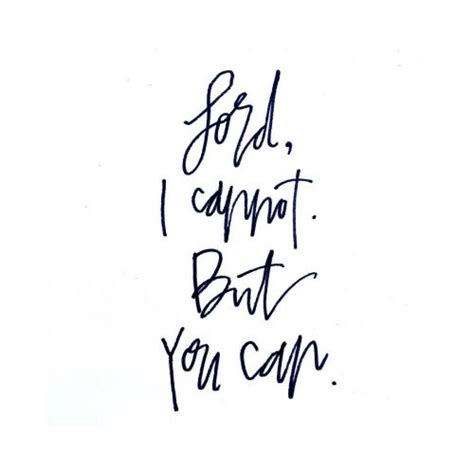 Lord,
I cannot.
But
You can.